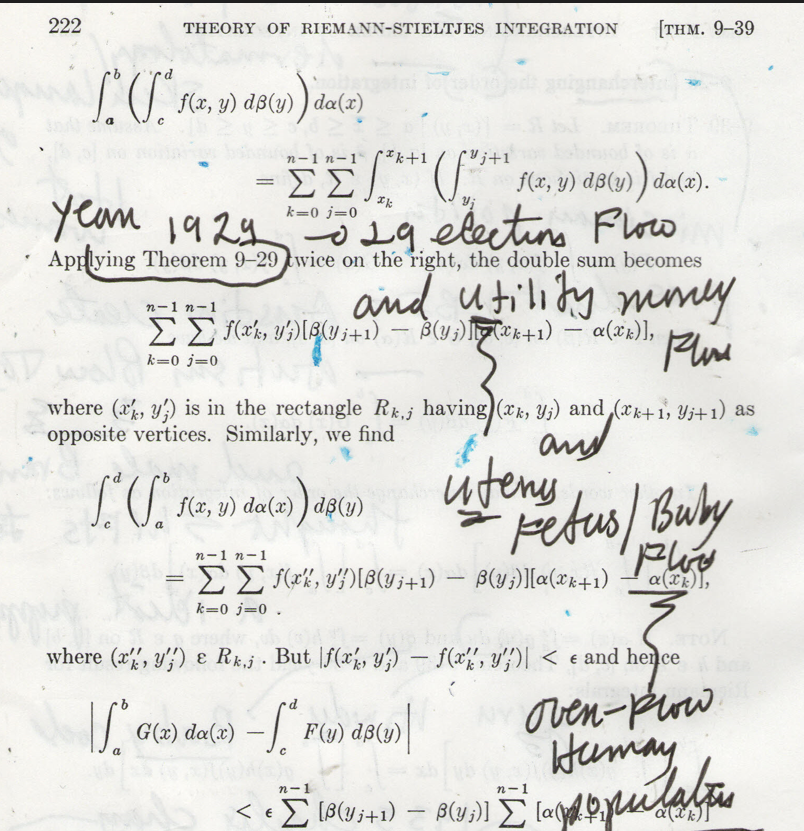 222 THEORY OF RIEMANN-STIELTJES INTEGRATION [THM. 9–39
∫_a^b (∫_c^d f(x, y) dβ(y)) dα(x)
= Σ_{k=0}^{n−1} Σ_{j=0}^{n−1} ∫_{x_k}^{x_{k+1}} (∫_{y_j}^{y_{j+1}} f(x, y) dβ(y)) dα(x).
year 1929 → 29 election Flow
Applying Theorem 9–29 twice on the right, the double sum becomes
and utility money
Σ_{k=0}^{n−1} Σ_{j=0}^{n−1} f(x′_k, y′_j)[β(y_{j+1}) − β(y_j)][α(x_{k+1}) − α(x_k)],
Flow
where (x′_k, y′_j) is in the rectangle R_{k,j} having (x_k, y_j) and (x_{k+1}, y_{j+1}) as
opposite vertices. Similarly, we find
and
uterus
Fetus / Baby
∫_c^d (∫_a^b f(x, y) dα(x)) dβ(y)
Flow
= Σ_{k=0}^{n−1} Σ_{j=0}^{n−1} f(x″_k, y″_j)[β(y_{j+1}) − β(y_j)][α(x_{k+1}) − α(x_k)],
where (x″_k, y″_j) ε R_{k,j}. But |f(x′_k, y′_j) − f(x″_k, y″_j)| < ϵ and hence
over-Flow
|∫_a^b G(x) dα(x) − ∫_c^d F(y) dβ(y)|
Human
population
< ϵ Σ_{j=0}^{n−1} [β(y_{j+1}) − β(y_j)] Σ^{n−1} [α(x_{k+1}) − α(x_k)]